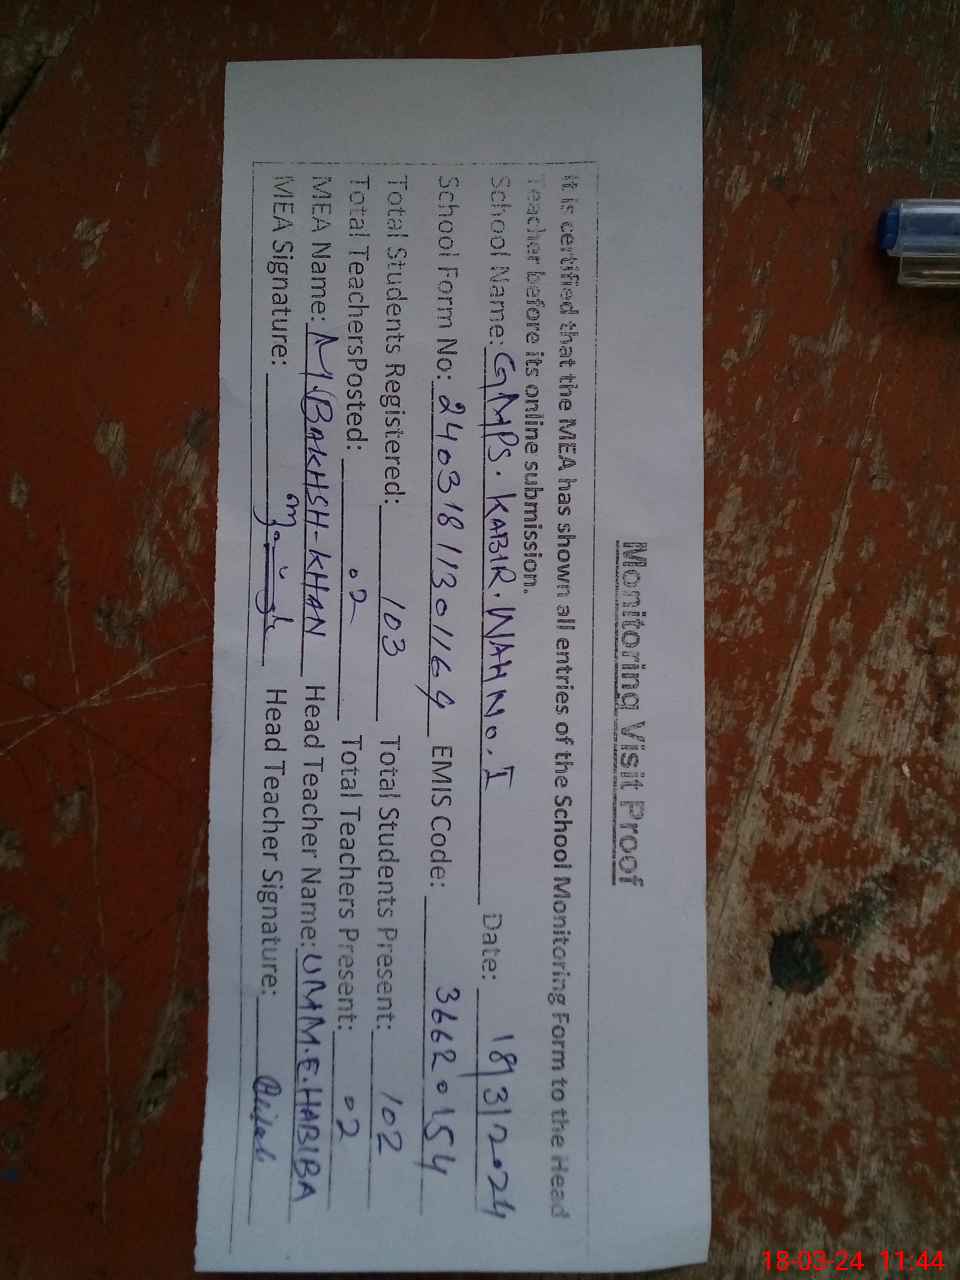 Monitoring Visit Proof
It is certified that the MEA has shown all entries of the School Monitoring Form to the Head
Teacher before its online submission.
School Name: GMPS. KABIR. WAH No. I Date: 18/3/2024
School Form No: 24031811301169 EMIS Code: 36620154
Total Students Registered: 103 Total Students Present: 102
Total TeachersPosted: 02 Total Teachers Present: 02
MEA Name: M.BAKHSH-KHAN Head Teacher Name: UMM.E.HABIBA
MEA Signature: Head Teacher Signature:
18-03-24 11:44